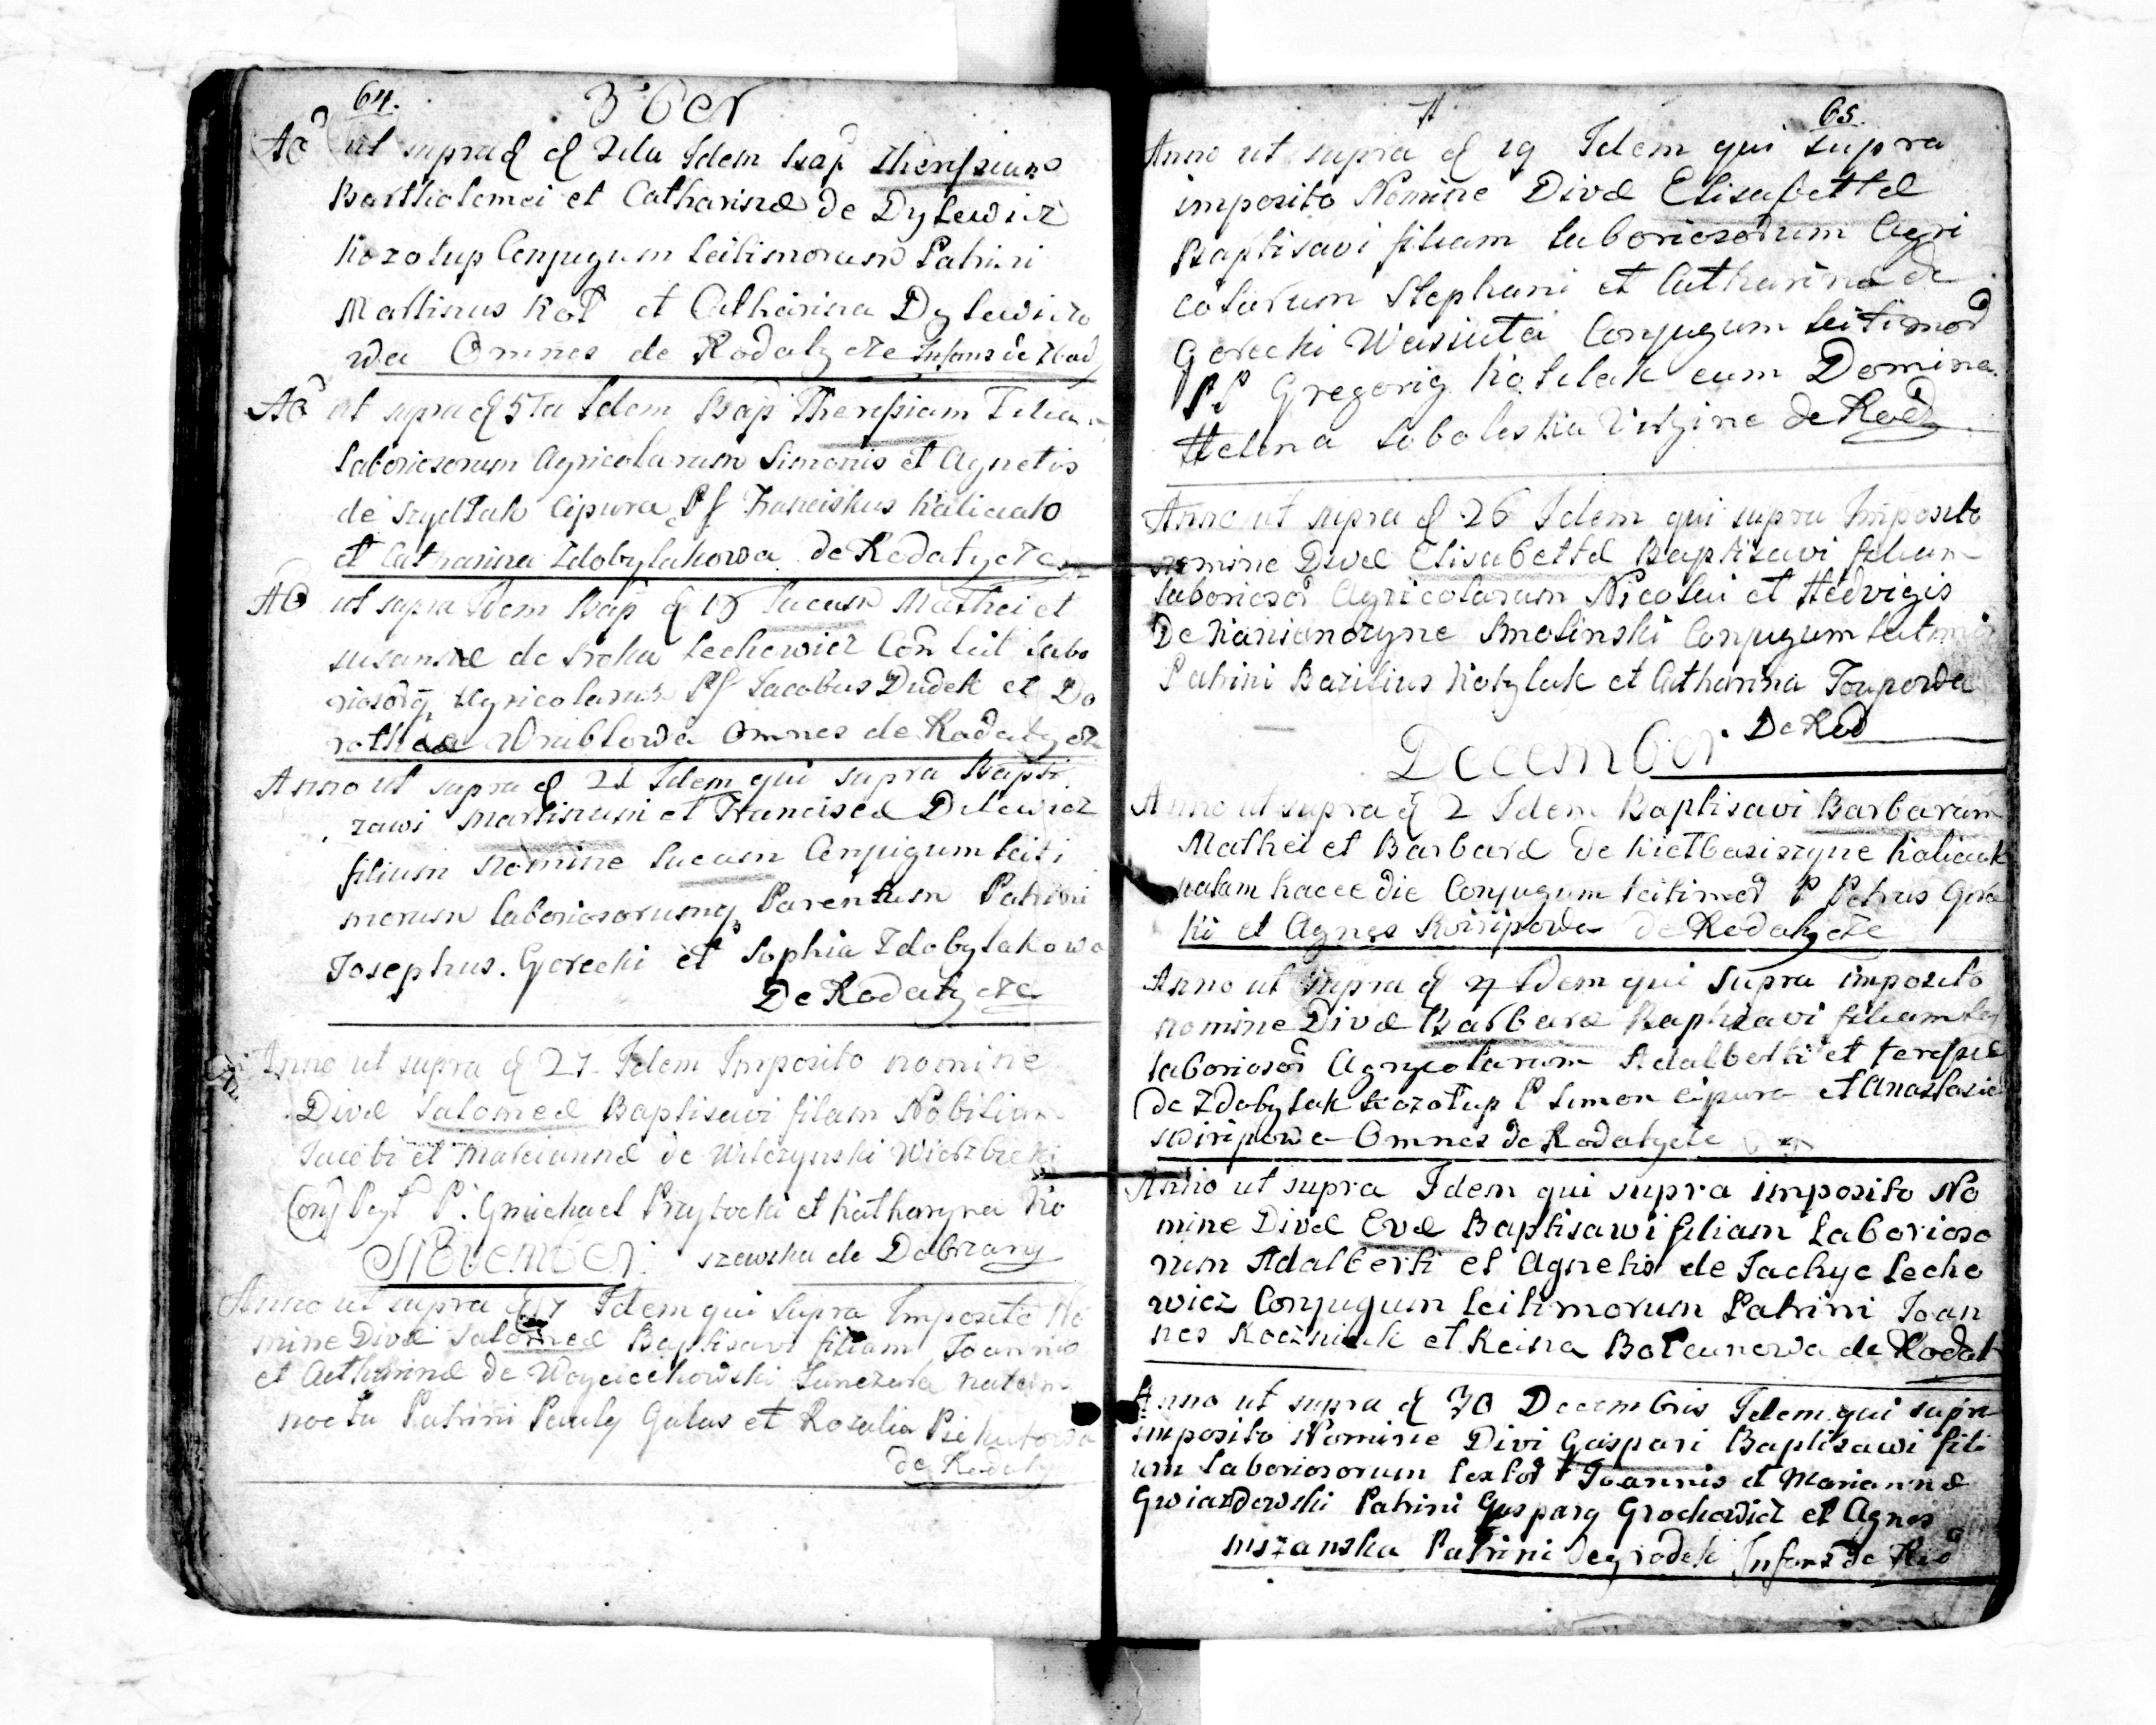 64.
Aō ut supra d 2da Idem Bap Theressiam
Barttholomei et Catharinæ de Dylewicz
Kozolup Conjugum Leitimorum Patrini
Martinus Kot et Catharina Dylewiczo
wa Omnes de Rodatycze Infans de Rod
Aō ut supra d 5ta Idem Bap Theressiam Filiam
Laboriosorum Agricolarum Simonis et Agnetis
de Szydlak Cipura Pf Franciskus Kaliciak
et Catharina Zdobylakowa de Rodatycze
AO ut supra Idem Bap d 15 Lucam Mathei et
Susannæ de Lechowicz Con Leit Labo
Agricolarum Pf Jacobus Dudek et Do
rothea Wrublowa Omnes de Rodatycze
Anno ut supra d 21 Idem qui supra Bapti
zawi Martinum et Franciscæ Dilewicz
filium nomine Lucam Conjugum Leiti
morum laboriosorumq Parentum Patrini
Josephus. Gorecki et Sophia Zdobylakowa
De Rodatycze
Anno ut supra d 27. Idem Imposito nomine
Divæ Salomeæ Baptisavi filam Nobilium
Jacobi et Mariannæ de Wilczynski Wierzbicki
Conj P. Gmichael Przylocki et Katharyna Ko
November szewska de Dobrzany
Anno ut supra d Idem qui supra Imposito No
mine Divæ Salomeæ Baptisavi filiam Joannis
et Catharinæ de Woyciechowski natam
noctu Patrini Pauly Galus et Rosalia
de Rodaty
65.
Anno ut supra d 19 Idem qui supra
imposito Nomine Divæ Elisabettæ
Baptisavi filiam laboriosorum Agri
colarum Stephani et Catharinæ de
Gorecki Wasiuta Conjugum Leitimor
PP Gregorig Kotilak cum Domina
Helena Soboleska Virgine de Rod
Anno ut supra d 26 Idem qui supra Imposito
nomine Divæ Elisabettæ Baptisavi filiam
laborioso Agricolarum Nicolai et Hedvigis
De Smolinski Conjugum
Patrini Bazilius Kotylak et Catharina
De Rod
December
Anno ut supra d 2 Idem Baptisavi Barbaram
Mathei et Barbaræ de Kaliciak
natam hacce die Conjugum Leitimor P Petrus Gore
ki et Agnes de Rodatycze
Anno ut supra d 4 Idem qui supra imposito
nomine Divæ Barbaræ Baptisavi filiam
laborioso Agrycolarum Adalberti et teressiæ
de Zdobylak Kozolup P Simon cipura et Anastasia
Omnes de Rodatycze
Anno ut supra Idem qui supra imposito No
mine Divæ Evæ Baptisawi filiam Laborioso
rum Adalberti et Agnetis de Jachyc Lecho
wicz Conjugum Leitimorum Patrini Joan
nes et Reina de Rodat
Anno ut supra d 30 Decembris Idem qui supra
imposito Nomine Divi Gaspari Baptisawi fili
um Laboriosorum Joannis et Mariannæ
Gwiazdowski Patrini Gaspary Grochowicz et Agnes
mszanska Patrini Infans de Rod